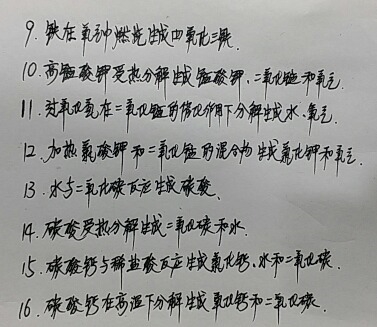 9. 铁在氧气中燃烧生成四氧化三铁.
10. 高锰酸钾受热分解生成锰酸钾、二氧化锰和氧气.
11. 过氧化氢在二氧化锰的催化作用下分解生成水、氧气.
12. 加热氯酸钾和二氧化锰的混合物生成氯化钾和氧气.
13. 水与二氧化碳反应生成碳酸.
14. 碳酸受热分解生成二氧化碳和水.
15. 碳酸钙与稀盐酸反应生成氯化钙、水和二氧化碳.
16. 碳酸钙在高温下分解生成氧化钙和二氧化碳.